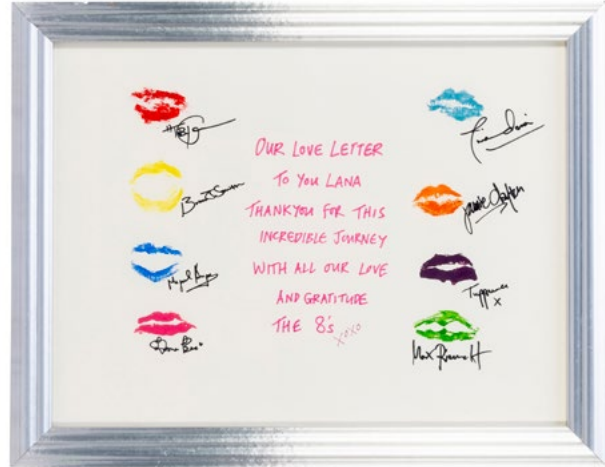 OUR LOVE LETTER
TO YOU LANA
THANKYOU FOR THIS
INCREDIBLE JOURNEY
WITH ALL OUR LOVE
AND GRATITUDE
THE 8's xoxo
Jamie Clayton
Tuppence
x
Max Riemelt